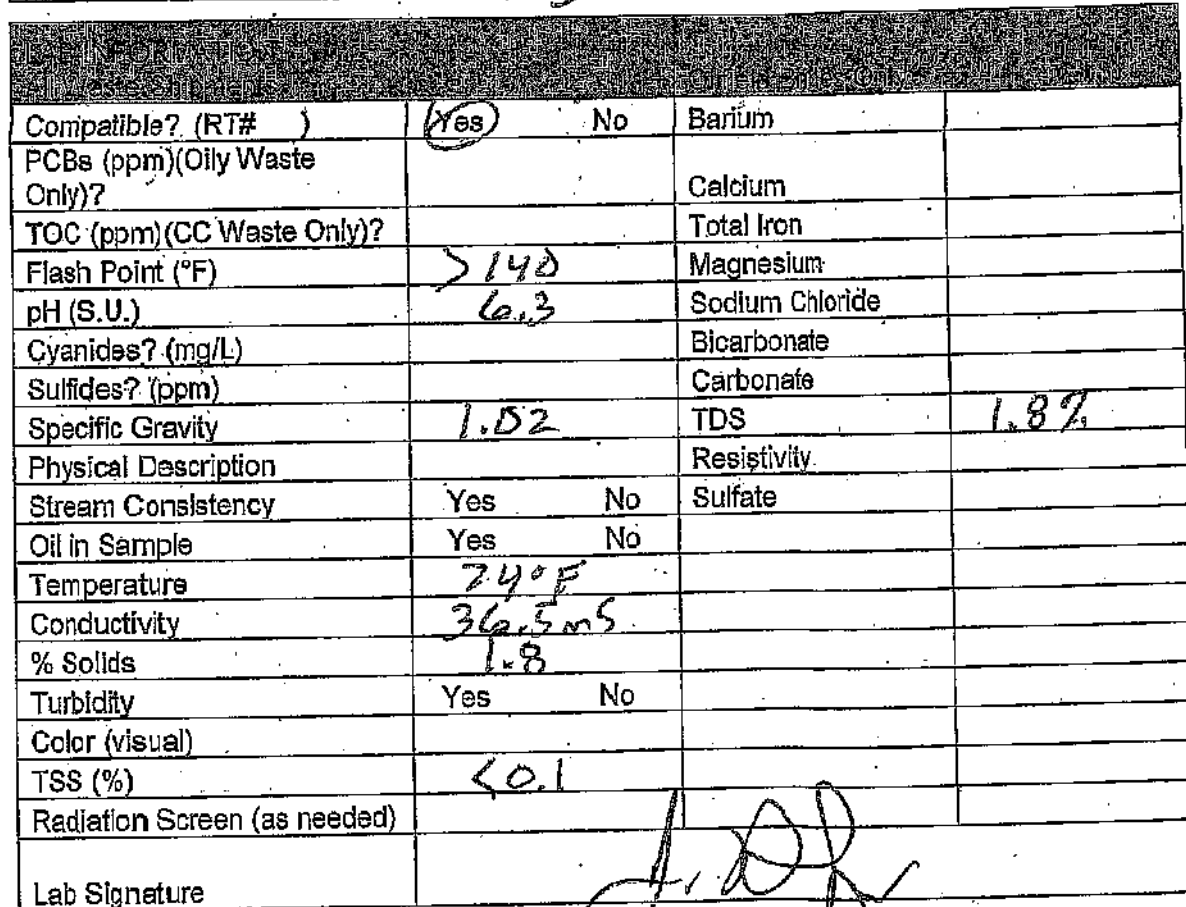 LAB INFORMATION
Compatible? (RT# ) Yes No Barium
PCBs (ppm)(Oily Waste
Only)? Calcium
TOC (ppm)(CC Waste Only)? Total Iron
Flash Point (°F) >140 Magnesium
pH (S.U.) 6.3 Sodium Chloride
Cyanides? (mg/L) Bicarbonate
Sulfides? (ppm) Carbonate
Specific Gravity 1.02 TDS 1.8%
Physical Description Resistivity
Stream Consistency Yes No Sulfate
Oil in Sample Yes No
Temperature 74°F
Conductivity 36.5 mS
% Solids 1.8
Turbidity Yes No
Color (visual)
TSS (%) <0.1
Radiation Screen (as needed)
Lab Signature